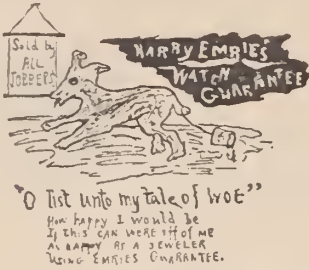 Sold by
ALL
JOBBERS
HARRY EMRIE'S
WATCH GUARANTEE
"O list unto my tale of WOE"
How happy I would be
If this CAN WERE off of ME
AS HAPPY AS A JEWELER
USING EMRIES GUARANTEE.